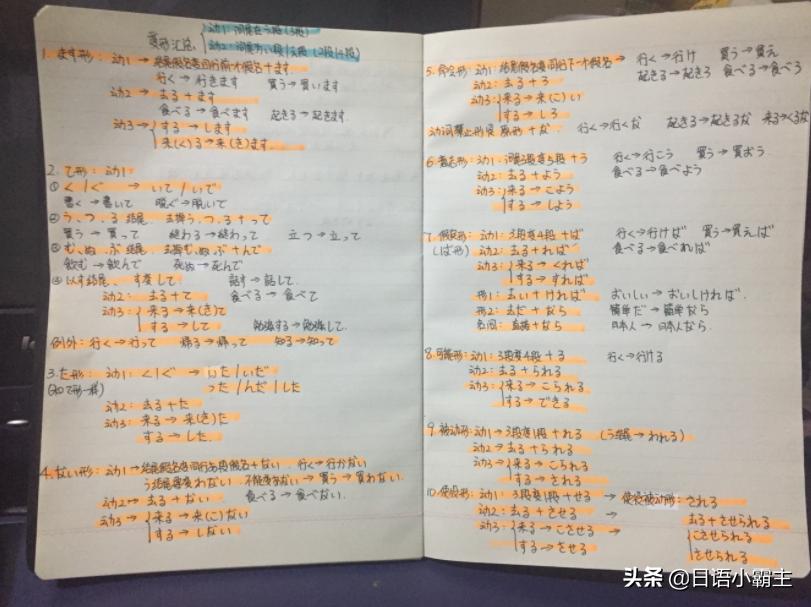 变形汇总
动1：词尾在う段(3段)
动2：词尾为い段/え段(2段/4段)
1. ます形：动1→结尾假名变同行前一个假名+ます
行く→行きます 買う→買います
动2→去る+ます
食べる→食べます 起きる→起きます
动3→する→します
来(く)る→来(き)ます.
2. て形：动1.
①く/ぐ → いて/いで
書く→書いて 脱ぐ→脱いで
②う、つ、る结尾 去掉う、つ、る+って
買う→買って 終わる→終わって 立つ→立って
③む、ぬ、ぶ结尾 去掉む、ぬ、ぶ+んで
飲む→飲んで 死ぬ→死んで
④以す结尾、す变して 話す→話して.
动2：去る+て 食べる→食べて
动3：来る→来(き)て
する→して 勉強する→勉強して.
例外：行く→行って 帰る→帰って 知る→知って
3. た形：动1：く/ぐ → いた/いだ
(和て形一样) った/んだ/した
动2：去る+た
动3：来る→来(き)た
する→した.
4. ない形：动1→结尾假名变同行あ段假名+ない. 行く→行かない
う结尾要变わない. 不能变あない→買う→買わない.
动2→去る+ない 食べる→食べない.
动3→来る→来(こ)ない
する→しない
5. 命令形：动1：结尾假名变同行下一个假名 行く→行け 買う→買え
动2：去る+ろ 起きる→起きろ 食べる→食べろ
动3：来る→来(こ)い
する→しろ
动词禁止形 原形+な 行く→行くな 起きる→起きるな 来る→くるな
6. 意志形：动1：词尾3段变5段+う 行く→行こう 買う→買おう
动2：去る+よう 食べる→食べよう
动3：来る→こよう
する→しよう
7. 假设形：动1：3段变4段+ば 行く→行けば 買う→買えば
(ば形) 动2：去る+れば 食べる→食べれば
动3：来る→くれば
する→すれば
形1：去い+ければ おいしい→おいしければ
形2：去だ+なら 簡単だ→簡単なら
名词：直接+なら 日本人→日本人なら.
8. 可能形：动1：3段变4段+る 行く→行ける
动2：去る+られる
动3：来る→こられる
する→できる
9. 被动形：动1→3段变1段+れる (う结尾→われる)
动2→去る+られる
动3→来る→こられる
する→される
10. 使役形：动1：3段变1段+せる → 使役被动形：される
动2：去る+させる → 去る+させられる
动3：来る→こさせる → こさせられる
する→させる させられる
头条 @日语小霸主